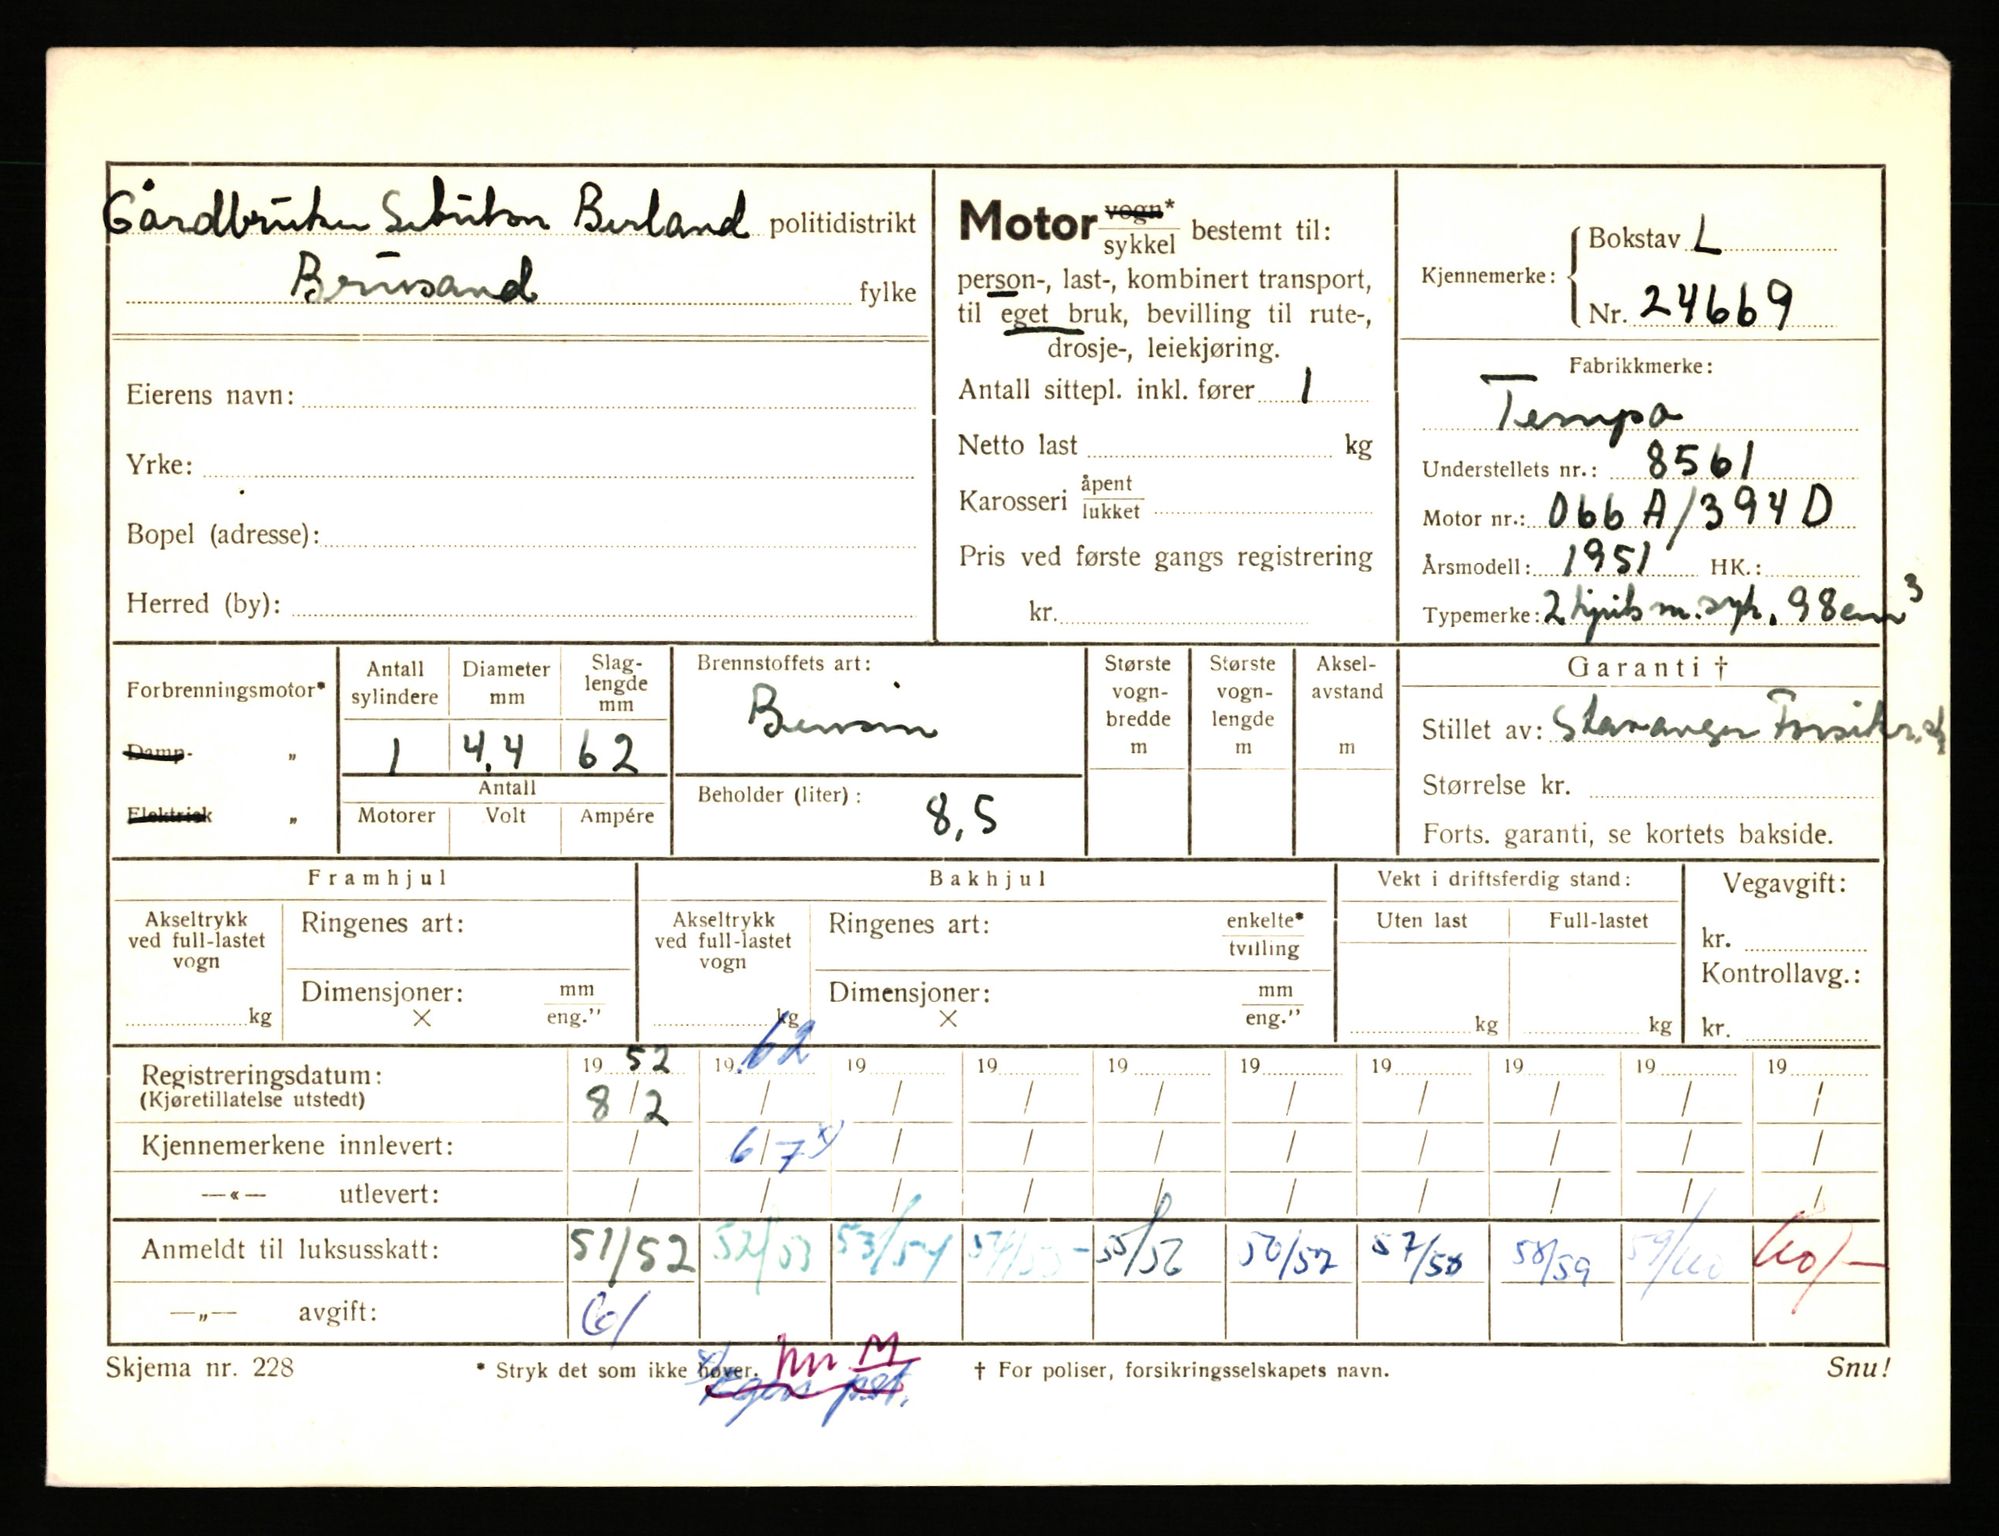 Gårdbruker Berland politidistrikt
Brusand fylke
Eierens navn:
Yrke:
Bopel (adresse):
Herred (by):
Motor vogn* / sykkel bestemt til:
person-, last-, kombinert transport,
til eget bruk, bevilling til rute-,
drosje-, leiekjøring.
Antall sittepl. inkl. fører 1
Netto last kg
Karosseri åpent / lukket
Pris ved første gangs registrering
kr.
Kjennemerke: Bokstav L
Nr. 24669
Fabrikkmerke:
Tempo
Understellets nr.: 8561
Motor nr.: 066A/394D
Årsmodell: 1951 HK.:
Typemerke: 2 hjuls m. syk. 98cm³
Forbrenningsmotor*
Damp- „
Elektrisk „
Antall sylindere
1
Diameter mm
4.4
Slag-lengde mm
62
Antall
Motorer Volt Ampére
Brennstoffets art:
Bensin
Beholder (liter): 8,5
Største vogn-bredde m
Største vogn-lengde m
Aksel-avstand m
Garanti †
Stillet av: Stavanger Forsikr.
Størrelse kr.
Forts. garanti, se kortets bakside.
Framhjul
Akseltrykk ved full-lastet vogn
kg
Ringenes art:
Dimensjoner: mm
× eng.”
Bakhjul
Akseltrykk ved full-lastet vogn
kg
Ringenes art: enkelte* / tvilling
Dimensjoner: mm
× eng.”
Vekt i driftsferdig stand:
Uten last Full-lastet
kg kg
Vegavgift:
kr.
Kontrollavg.:
kr.
Registreringsdatum: 19 52 19 62 19 19 19 19 19 19 19 19
(Kjøretillatelse utstedt) 8/2 / / / / / / / / /
Kjennemerkene innlevert: / 6/7 x) / / / / / / / /
—«— utlevert: / / / / / / / / / /
Anmeldt til luksusskatt: 51/52 52/53 53/54 54/55 55/56 56/57 57/58 58/59 59/60 60/—
—„— avgift: 61
Skjema nr. 228 * Stryk det som ikke høver. † For poliser, forsikringsselskapets navn. Snu!
M